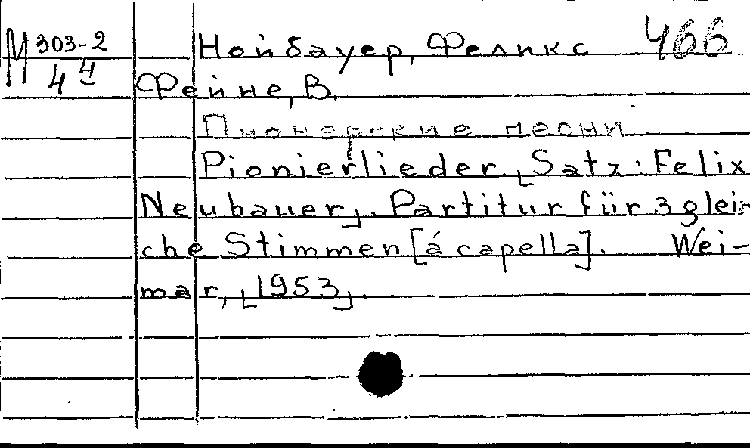 М 303-2 Нойбауер, Феликс 466
4 4 Фейне, В.
Пионерские песни
Pionierlieder, [Satz: Felix
Neubauer]. Partitur für 3 glei-
che Stimmen [á capella]. Wei-
mar, [1953].